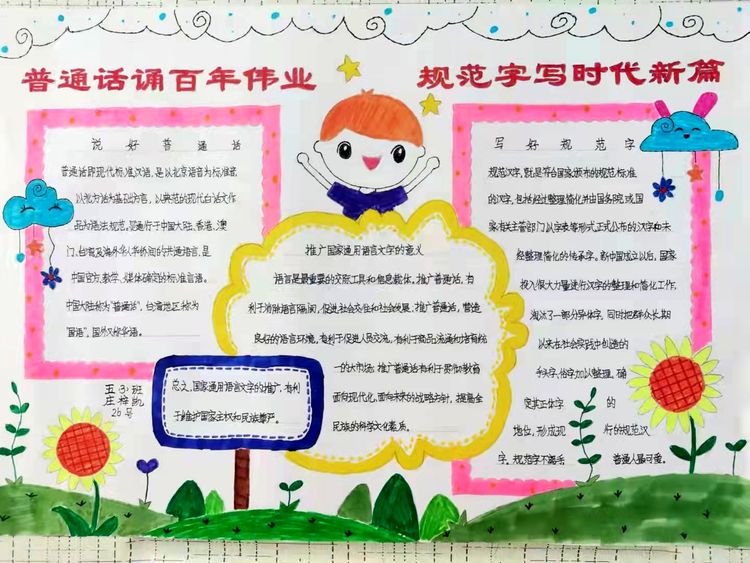 普通话诵百年伟业
规范字写时代新篇
说好普通话
普通话即现代标准汉语,是以北京语音为标准音
以北方话为基础方言,以典范的现代白话文作
品为语法规范,是通行于中国大陆、香港、澳
门、台湾及海外华人华侨间的共通语言,是
中国官方、教学、媒体确定的标准言语。
中国大陆称为"普通话",台湾地区称为
"国语",国外又称华语。
五(3)班
庄梓凯
26号
总之,国家通用语言文字的推广,有利
于维护国家主权和民族尊严。
推广国家通用语言文字的意义
语言是最重要的交际工具和信息载体。推广普通话,有
利于消除语言隔阂,促进社会交往和社会发展;推广普通话,营造
良好的语言环境,有利于促进人员交流,有利于商品流通和培育统
一的大市场;推广普通话有利于贯彻教育
面向现代化,面向未来的战略方针,提高全
民族的科学文化素质。
写好规范字
规范汉字,既是符合国家颁布的规范标准
的汉字,包括经过整理简化并由国务院或国
家有关主管部门以字表等形式正式公布的汉字和未
经整理简化的传承字。新中国成立以后,国家
投入很大力量进行汉字的整理和简化工作,
淘汰了一部分异体字,同时把群众长期
以来在社会实践中创造的
手头字、俗字加以整理,确
定其正体字的
地位,形成现行的规范汉
字。规范字不离手,普通人最可重。